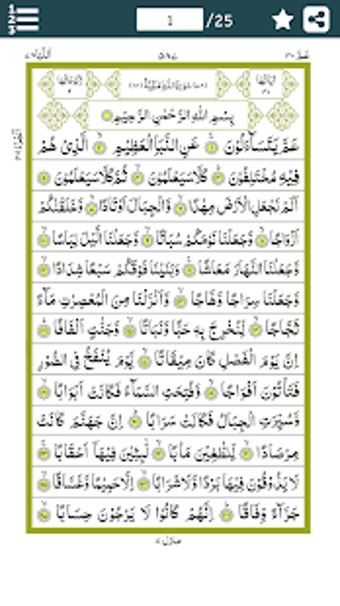 1 /25
عم ٣٠
٥٨٧
بِسْمِ اللهِ الرَّحْمٰنِ الرَّحِيْمِ
عَمَّ يَتَسَآءَلُوْنَ عَنِ النَّبَاِ الْعَظِيْمِ الَّذِيْ هُمْ
فِيْهِ مُخْتَلِفُوْنَ كَلَّا سَيَعْلَمُوْنَ ثُمَّ كَلَّا سَيَعْلَمُوْنَ
اَلَمْ نَجْعَلِ الْاَرْضَ مِهٰدًا وَّالْجِبَالَ اَوْتَادًا وَّخَلَقْنٰكُمْ
اَزْوَاجًا وَّجَعَلْنَا نَوْمَكُمْ سُبَاتًا وَّجَعَلْنَا الَّيْلَ لِبَاسًا
وَّجَعَلْنَا النَّهَارَ مَعَاشًا وَّبَنَيْنَا فَوْقَكُمْ سَبْعًا شِدَادًا
وَّجَعَلْنَا سِرَاجًا وَّهَّاجًا وَّاَنْزَلْنَا مِنَ الْمُعْصِرٰتِ مَآءً
ثَجَّاجًا لِّنُخْرِجَ بِهٖ حَبًّا وَّنَبَاتًا وَّجَنّٰتٍ اَلْفَافًا
اِنَّ يَوْمَ الْفَصْلِ كَانَ مِيْقَاتًا يَّوْمَ يُنْفَخُ فِي الصُّوْرِ
فَتَاْتُوْنَ اَفْوَاجًا وَّفُتِحَتِ السَّمَآءُ فَكَانَتْ اَبْوَابًا
وَّسُيِّرَتِ الْجِبَالُ فَكَانَتْ سَرَابًا اِنَّ جَهَنَّمَ كَانَتْ
مِرْصَادًا لِّلطّٰغِيْنَ مَاٰبًا لّٰبِثِيْنَ فِيْهَآ اَحْقَابًا
لَا يَذُوْقُوْنَ فِيْهَا بَرْدًا وَّلَا شَرَابًا اِلَّا حَمِيْمًا وَّغَسَّاقًا
جَزَآءً وِّفَاقًا اِنَّهُمْ كَانُوْا لَا يَرْجُوْنَ حِسَابًا
منزل ٧